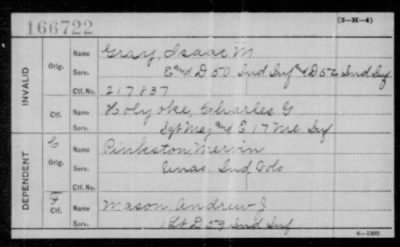 166722
(3-H-4)
INVALID
Orig.
Name Gray, Isaac M
Serv. E and D 50 Ind Inf & D 52 Ind Inf
Ctf. No. 217837
Ctf.
Name Holyoke, Charles G
Serv. Sgt Maj and E 17 Me Inf
DEPENDENT
C
Orig.
Name Pinkston, Mervin
Serv. Unas. Ind Vols
Ctf. No.
F
Ctf.
Name Mason, Andrew J
Serv. 1 Lt D 59 Ind Inf
6-1302